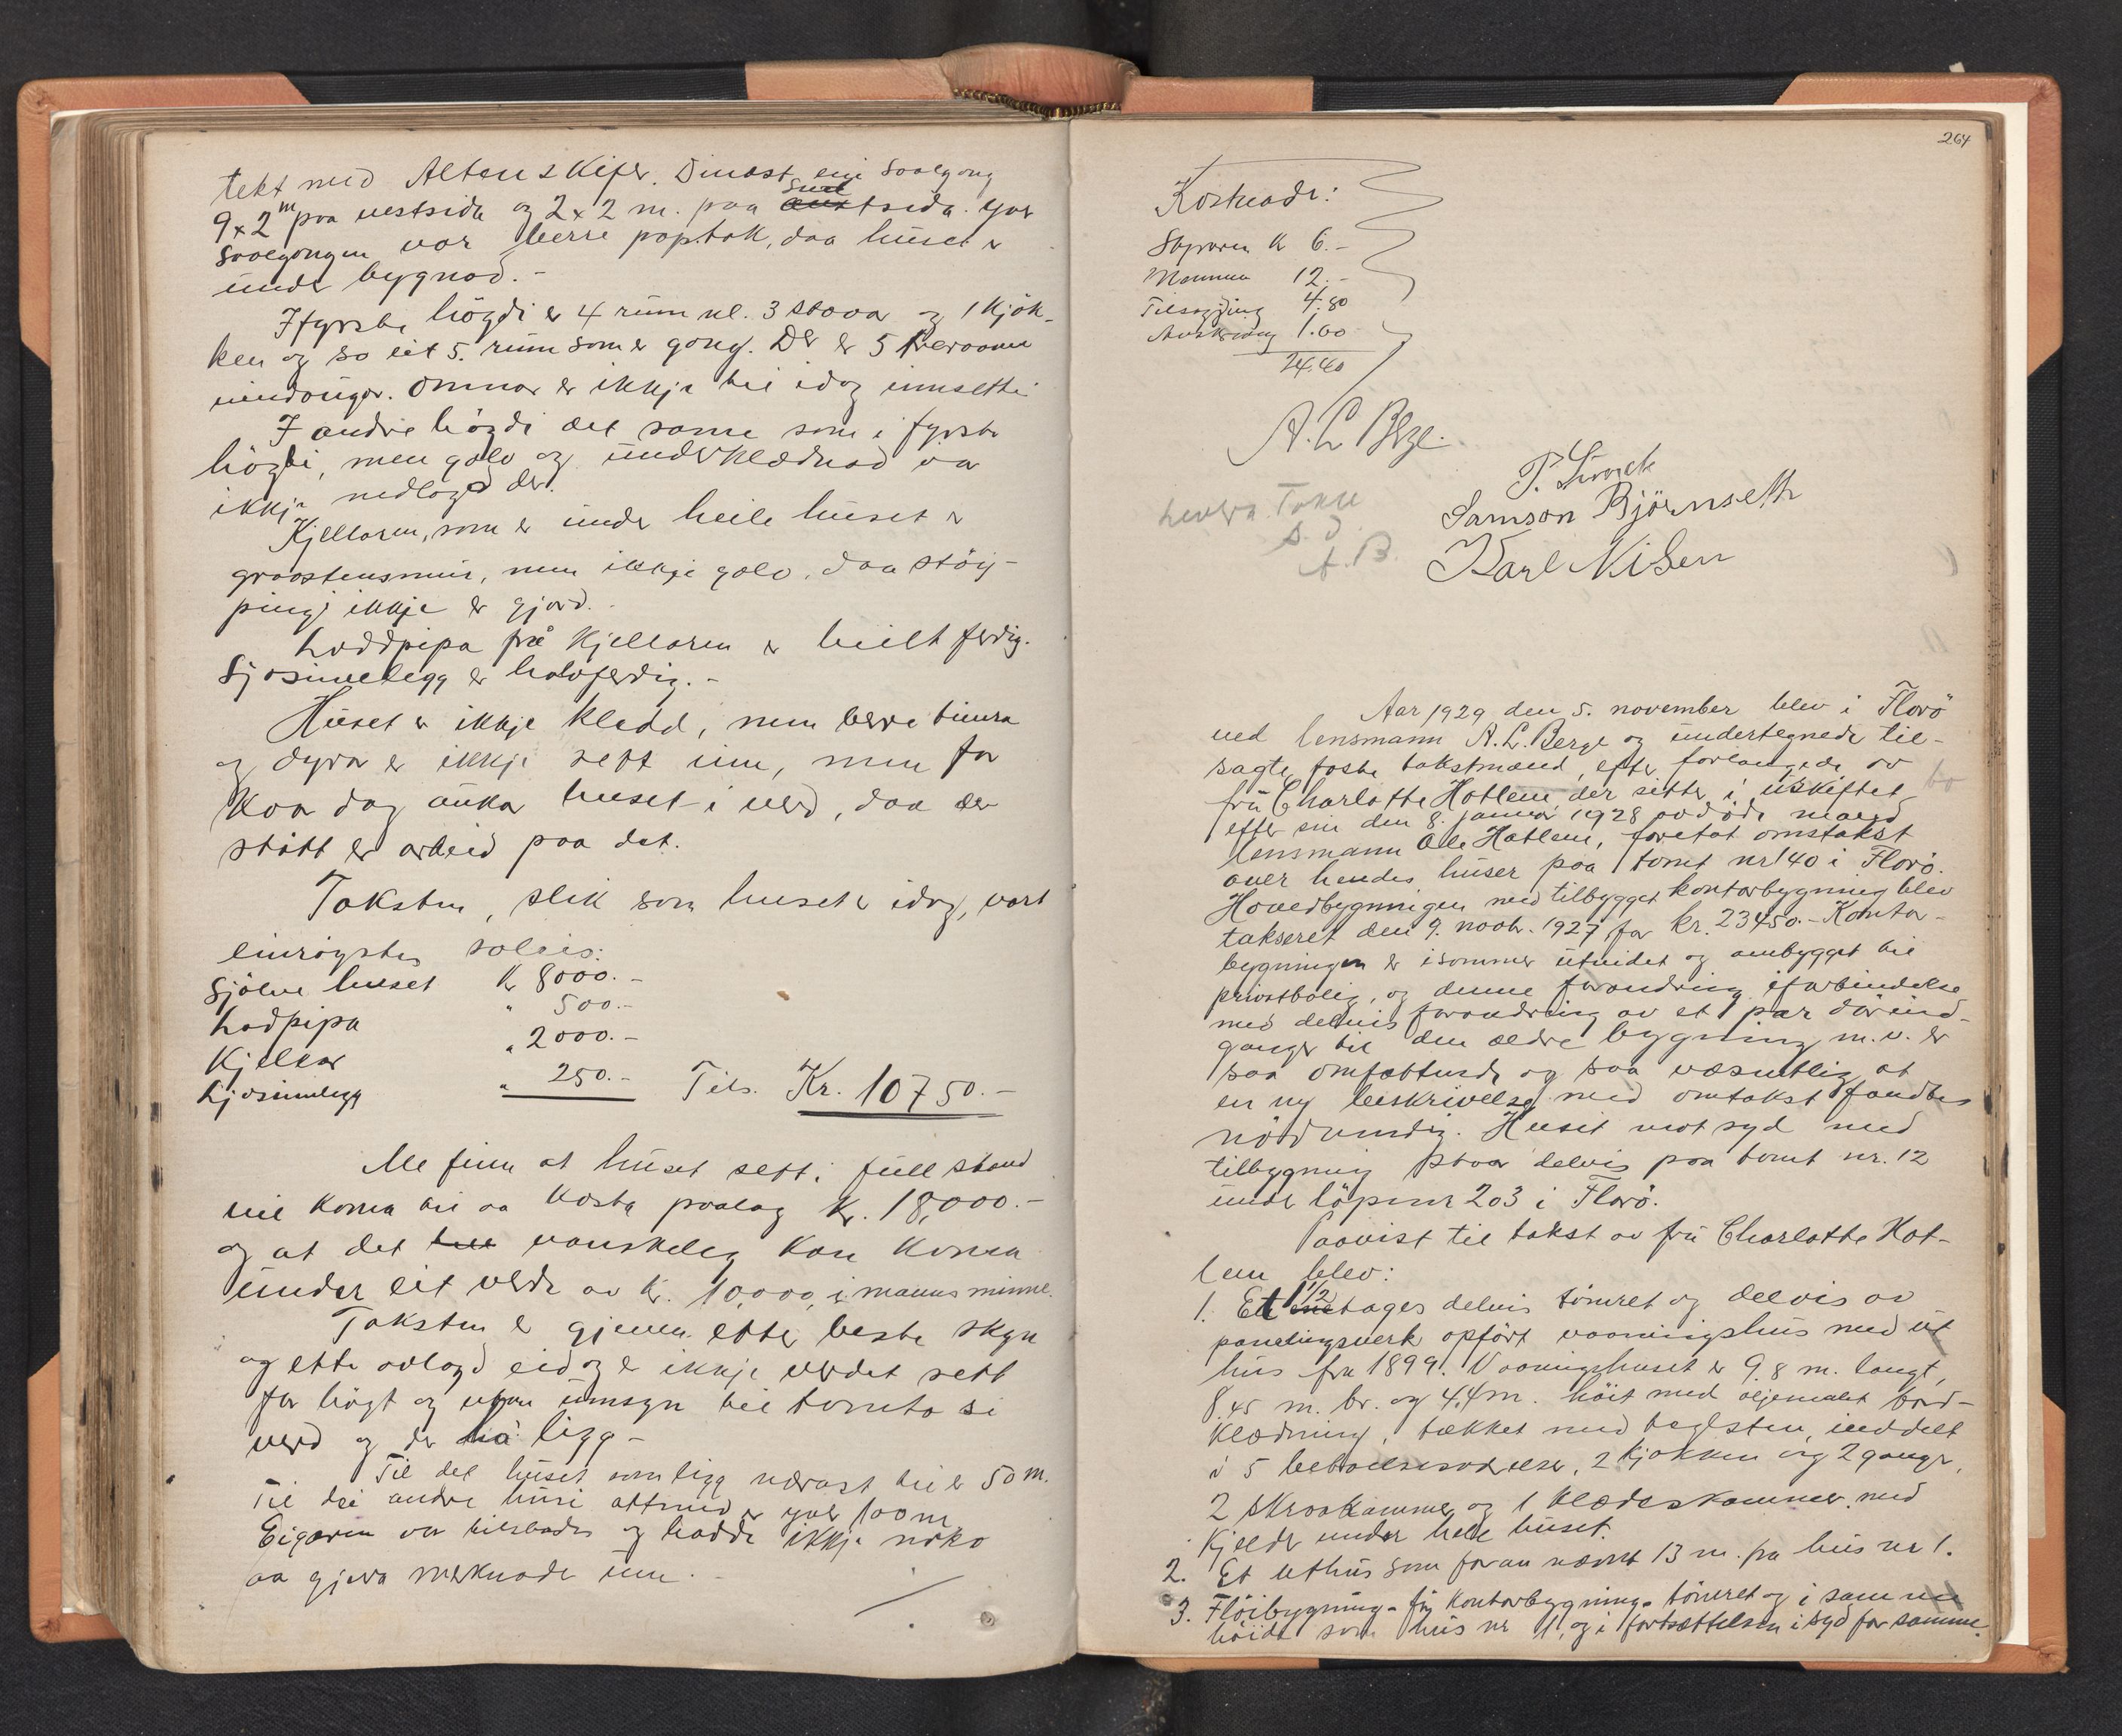 tekt med Alten skifer. Dinæst ein svalgong
9x2 m paa vestsida og 2x2 m. paa Sud austsida. Yver
svalgongen var berre paptak, daa huset er
under bygnad. -
I fyrste högdi er 4 rum nl. 3 stovor og 1 kjök-
ken og so eit 5. rum som er gong. Der er 5
vindauger. Omnar er ikkje til idag innsette
I andre högdi det same som i fyrste
högdi, men golv og underklædnad var
ikkje nedlagd der.
Kjellaren, som er under heile huset er
graasteinsmur, men ikkje golv, daa stöy-
ping ikkje er gjord.
Loddpipa frå kjellaren er heilt ferdig.
Ljosinnlegg er halvferdig. -
Huset er ikkje kledd, men berre timra
og dyra er ikkje sett inn, men for
kvar dag aukar huset i verd, daa der
stött er arbeid paa det.
Taksten, slik som huset er idag, vart
einröystes soleis:
Sjölve huset Kr 8000.-
Lodpipa " 500.-
Kjellar " 2000.-
Ljosinnlegg " 250.- Tils. Kr. 10750.-
Me finn at huset sett i full stand
vil koma til aa kosta paalag Kr. 18,000.-
og at det vanskeleg kan koma
under eit verde av Kr. 10,000, i manns minne.
Taksten er gjeven etter beste skyn
og etter avlagd eid og er ikkje verdet sett
for högt og utan umsyn til tomta si
verd og der ho ligg -
Til det huset som ligg nærast til er 50 m.
Til dei andre husi attmed er yver 100 m
Eigaren var tilstades og hadde ikkje noko
aa gjeva merknade um. -
264
Kostnadr:
Styraren Kr 6.-
Mennene 12.-
Tilseigjing 4.80
Avskriving 1.60
24.40
A. L. Berge.
P. Svorek
Samson Björnseth
Karl Nilsen
Levera Takst
s. d.
A. B.
Aar 1929 den 5. november blev i Florö
ved lensmann A. L. Berge og undertegnede til-
sagte faste takstmænd, efter forlangende av
fru Charlotte Hatlem, der sitter i uskiftet bo
efter sin den 8. januar 1928 avdöde mand
lensmann Ole Hatlem, foretat omtakst
over hendes huser paa tomt nr 140 i Florö.
Hovedbygningen med tilbygget kontorbygning blev
takseret den 9. novbr. 1927 for kr. 23450.- Kontor-
bygningen er isommer utvidet og ombygget til
privatbolig, og denne forandring iforbindelse
med delvis forandring av et par dörind-
ganger til den ældre bygning m. v. er
saa omfattende og saa væsentlig at
en ny beskrivelse med omtakst fandtes
nödvendig. Huset mot syd med
tilbygning staar delvis paa tomt nr. 12
under löpenr 203 i Florö.
Paavist til takst av fru Charlotte Hat-
lem blev:
1. Et 1 1/2 etages delvis tömret og delvis av
panelingsverk opfört vaaningshus med ut
hus fra 1899. Vaaningshuset er 9.8 m. langt,
8.45 m. br. og 4.4 m. höit med oljemalet bord-
klædning, tækket med teglsten, inddelt
i 5 beboelsesværelser, 2 kjökken og 2 ganger,
2 skraakammer og 1 klædeskammer med
kjelder under hele huset.
2. Et uthus som foran nævnt 13 m. fra hus nr 1.
3. Flöibygning - för kontorbygning - tömret og i samme
höide som hus nr 1, og i fortsættelsen i syd for samme.